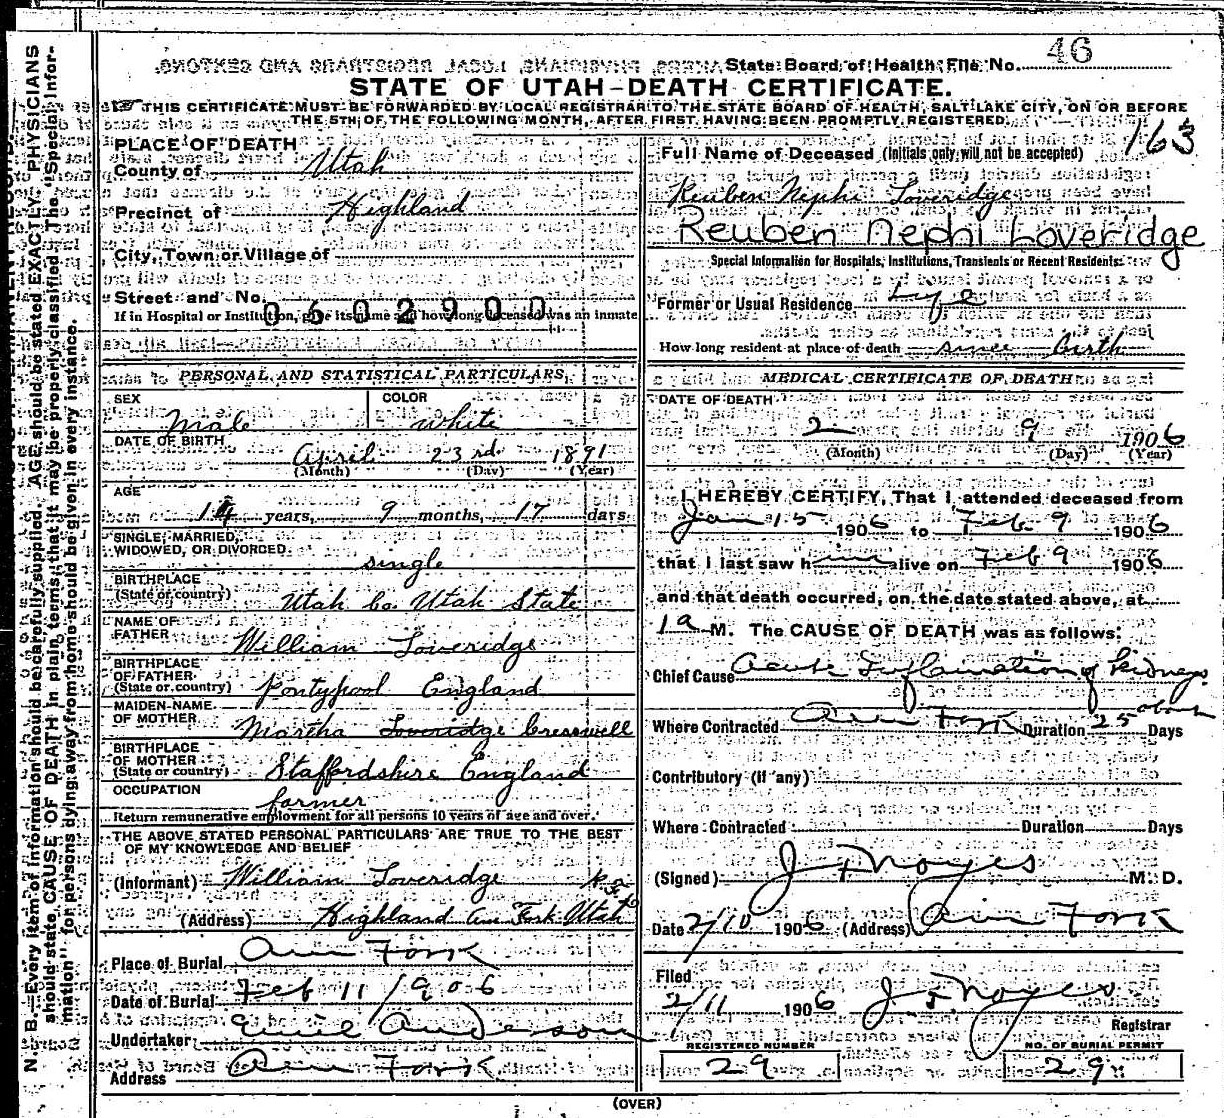 State Board of Health File No. 46
STATE OF UTAH-DEATH CERTIFICATE.
THIS CERTIFICATE MUST BE FORWARDED BY LOCAL REGISTRAR TO THE STATE BOARD OF HEALTH, SALT LAKE CITY, ON OR BEFORE
THE 5TH OF THE FOLLOWING MONTH, AFTER FIRST HAVING BEEN PROMPTLY REGISTERED.
163
PLACE OF DEATH
County of Utah
Precinct of Highland
City, Town or Village of
Street and No.
0602900
If in Hospital or Institution, give its name and how long deceased was an inmate
PERSONAL AND STATISTICAL PARTICULARS
SEX Male COLOR White
DATE OF BIRTH April 23rd 1891
(Month) (Day) (Year)
AGE
14 years, 9 months, 17 days
SINGLE, MARRIED,
WIDOWED, OR DIVORCED single
BIRTHPLACE
(State or country) Utah Co. Utah State
NAME OF
FATHER William Loveridge
BIRTHPLACE
OF FATHER
(State or country) Pontypool England
MAIDEN NAME
OF MOTHER Martha Loveridge Cresswell
BIRTHPLACE
OF MOTHER
(State or country) Staffordshire England
OCCUPATION
farmer
Return remunerative employment for all persons 10 years of age and over.
THE ABOVE STATED PERSONAL PARTICULARS ARE TRUE TO THE BEST
OF MY KNOWLEDGE AND BELIEF
(Informant) William Loveridge
(Address) Highland Am Fork Utah
Place of Burial Am Fork
Date of Burial Feb 11 1906
Undertaker Emil Anderson
Address Am Fork
Full Name of Deceased (Initials only will not be accepted)
Reuben Nephi Loveridge
Reuben Nephi Loveridge
Special Information for Hospitals, Institutions, Transients or Recent Residents:
Former or Usual Residence Life
How long resident at place of death since birth
MEDICAL CERTIFICATE OF DEATH
DATE OF DEATH
2 9 1906
(Month) (Day) (Year)
I HEREBY CERTIFY, That I attended deceased from
Jan 15 1906 to Feb 9 1906
that I last saw him alive on Feb 9 1906
and that death occurred, on the date stated above, at
1 a M. The CAUSE OF DEATH was as follows:
Chief Cause Acute Inflamation of Kidneys
Where Contracted Am Fork Duration 25 about Days
Contributory (if any)
Where Contracted Duration Days
(Signed) J F Noyes M. D.
Date 2/10 1906 (Address) Am Fork
Filed
2/11 1906 J. F. Noyes
Registrar
REGISTERED NUMBER
29
NO. OF BURIAL PERMIT
29
(OVER)
N. B.—Every item of information should be carefully supplied. AGE should be stated EXACTLY. PHYSICIANS
should state CAUSE OF DEATH in plain terms, that it may be properly classified. The "Special Infor-
mation" for persons dying away from home should be given in every instance.